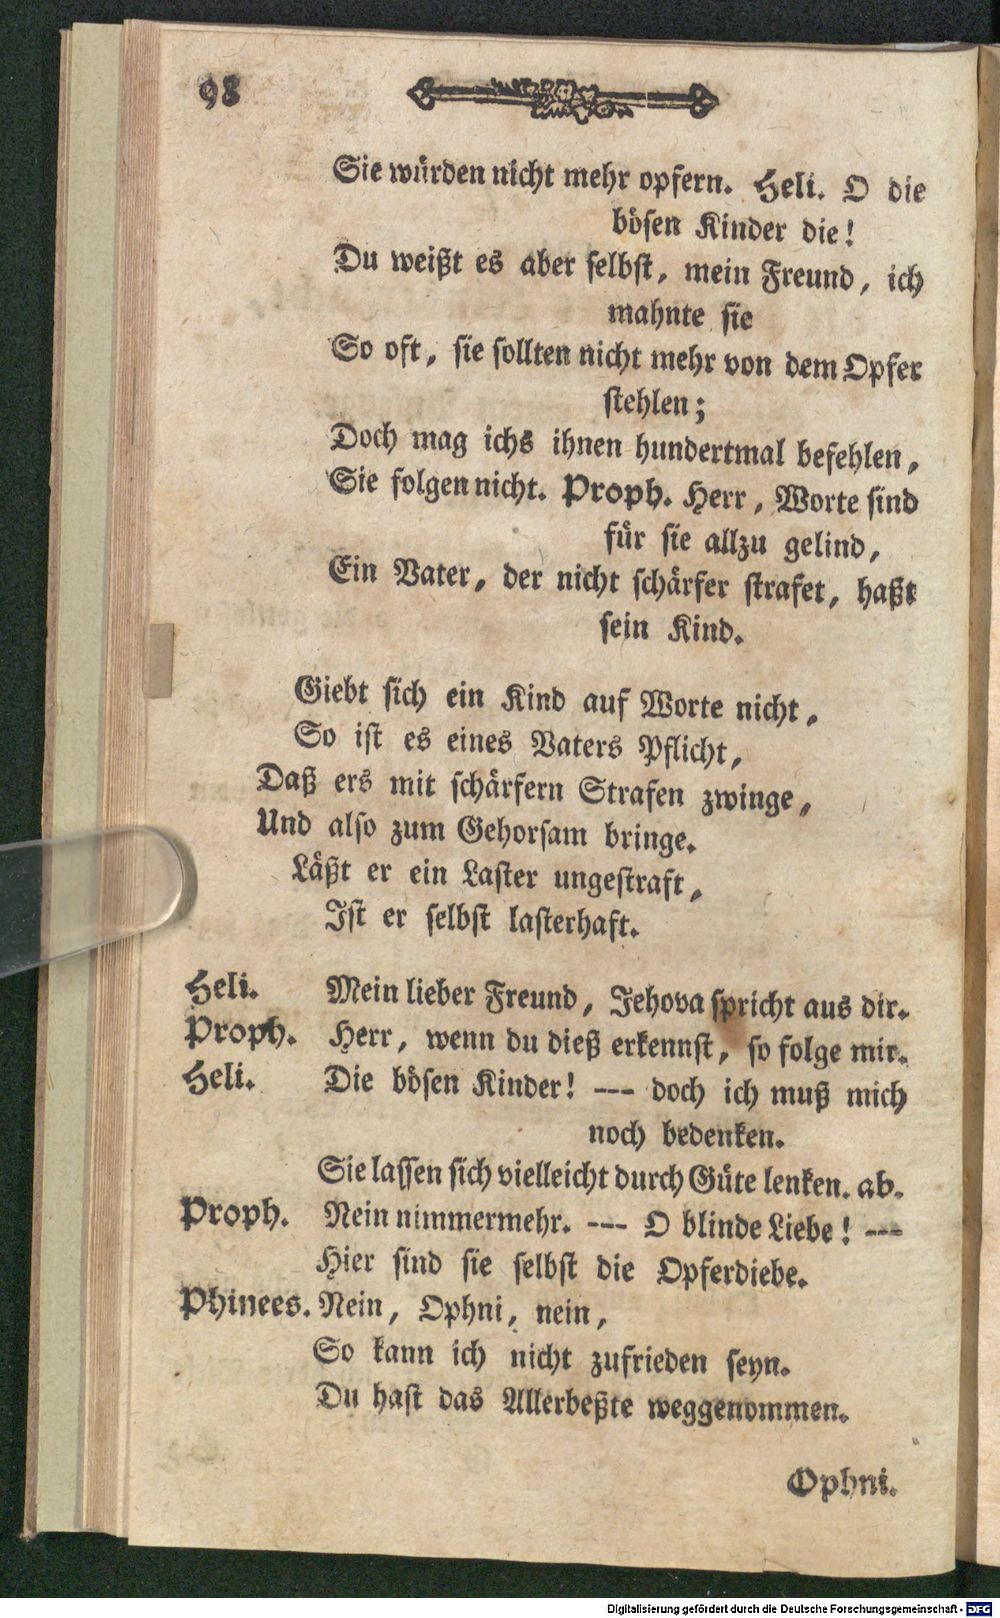 98
Sie würden nicht mehr opfern. Heli. O die
bösen Kinder die!
Du weißt es aber selbst, mein Freund, ich
mahnte sie
So oft, sie sollten nicht mehr von dem Opfer
stehlen;
Doch mag ichs ihnen hundertmal befehlen,
Sie folgen nicht. Proph. Herr, Worte sind
für sie allzu gelind,
Ein Vater, der nicht schärfer strafet, haßt
sein Kind.
Giebt sich ein Kind auf Worte nicht,
So ist es eines Vaters Pflicht,
Daß ers mit schärfern Strafen zwinge,
Und also zum Gehorsam bringe.
Läßt er ein Laster ungestraft,
Ist er selbst lasterhaft.
Heli. Mein lieber Freund, Jehova spricht aus dir.
Proph. Herr, wenn du dieß erkennst, so folge mir.
Heli. Die bösen Kinder! --- doch ich muß mich
noch bedenken.
Sie lassen sich vielleicht durch Güte lenken. ab.
Proph. Nein nimmermehr. --- O blinde Liebe! ---
Hier sind sie selbst die Opferdiebe.
Phinees. Nein, Ophni, nein,
So kann ich nicht zufrieden seyn.
Du hast das Allerbeßte weggenommen.
Ophni.
Digitalisierung gefördert durch die Deutsche Forschungsgemeinschaft - DFG